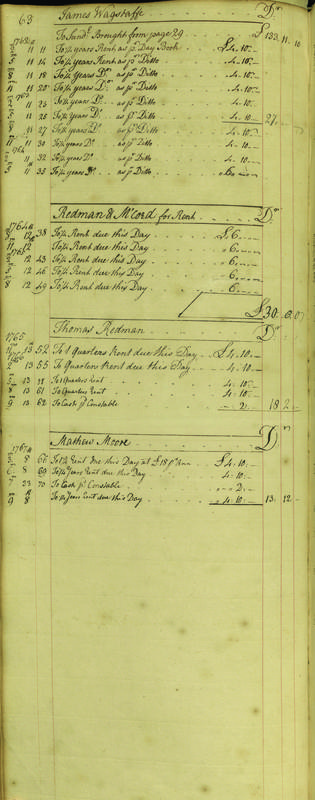 63 James Wagstaffe Dr
To Sundr. Brought from page 29 £ 133. 11. 10
11 11 To ¼ years Rent as pr. Day Book £4. 10. —
11 14 To ¼ years Rent as pr. Ditto 4. 10. —
11 18 To ¼ years Do. as pr. Ditto 4. 10. —
11 20 To ¼ years Do. as pr. Ditto 4. 10. —
11 23 To ¼ years Do. as pr. Ditto 4. 10. —
11 25 To ¼ years Do. as pr. Ditto 4. 10. — 27. —
11 27 To ¼ years Do. as pr. Ditto 4. 10. —
11 30 To ¼ years Do. as pr. Ditto 4. 10. —
11 32 To ¼ years Do. as pr. Ditto 4. 10. —
11 35 To ¼ years Do. as pr. Ditto
Redman & McCord for Rent Dr
1764 12 38 To ¼ Rent due this Day £6. —
12 To ¼ Rent due this Day 6. —
12 43 To ¼ Rent due this Day 6. —
12 46 To ¼ Rent due this Day 6. —
12 49 To ¼ Rent due this Day 6. —
£30. 0. 0
Thomas Redman Dr
1765
13 52 To 1 Quarters Rent due this Day £4. 10. —
13 55 To Quarters Rent due this Day 4. 10. —
13 To 1 Quarters Rent 4. 10. —
13 61 To Quarters Rent 4. 10. —
9 13 62 To Cash pr. Constable 2. 18 2. —
Mathew Moore Dr
1767
8 66 To ¼ Rent due this Day at £18 pr. Ann £4. 10. —
8 69 To ¼ Years Rent due this Day 4. 10. —
7 23 70 To Cash pr. Constable 2. —
9 8 To ¼ Years Rent due this Day 4. 10. — 13. 12. —